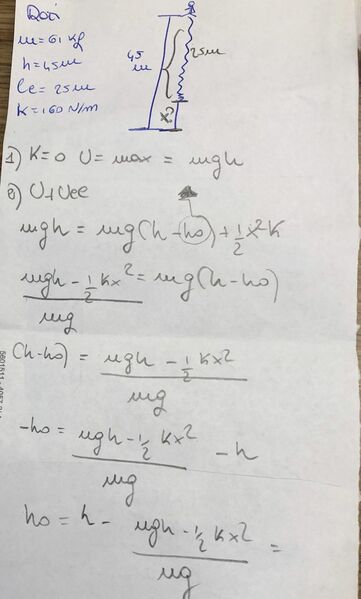 Dati
m=61 kg
h=45m
le=25m
K=160 N/m
45 m
25m
x?
1) K=0 U=max = mgh
2) U+Uel
mgh = mg(h-ho)+1/2 x²K
mgh - 1/2 Kx² / mg = mg(h-ho)
(h-ho) = mgh - 1/2 Kx² / mg
-ho = mgh - 1/2 Kx² / mg - h
ho = h - mgh - 1/2 Kx² / mg =